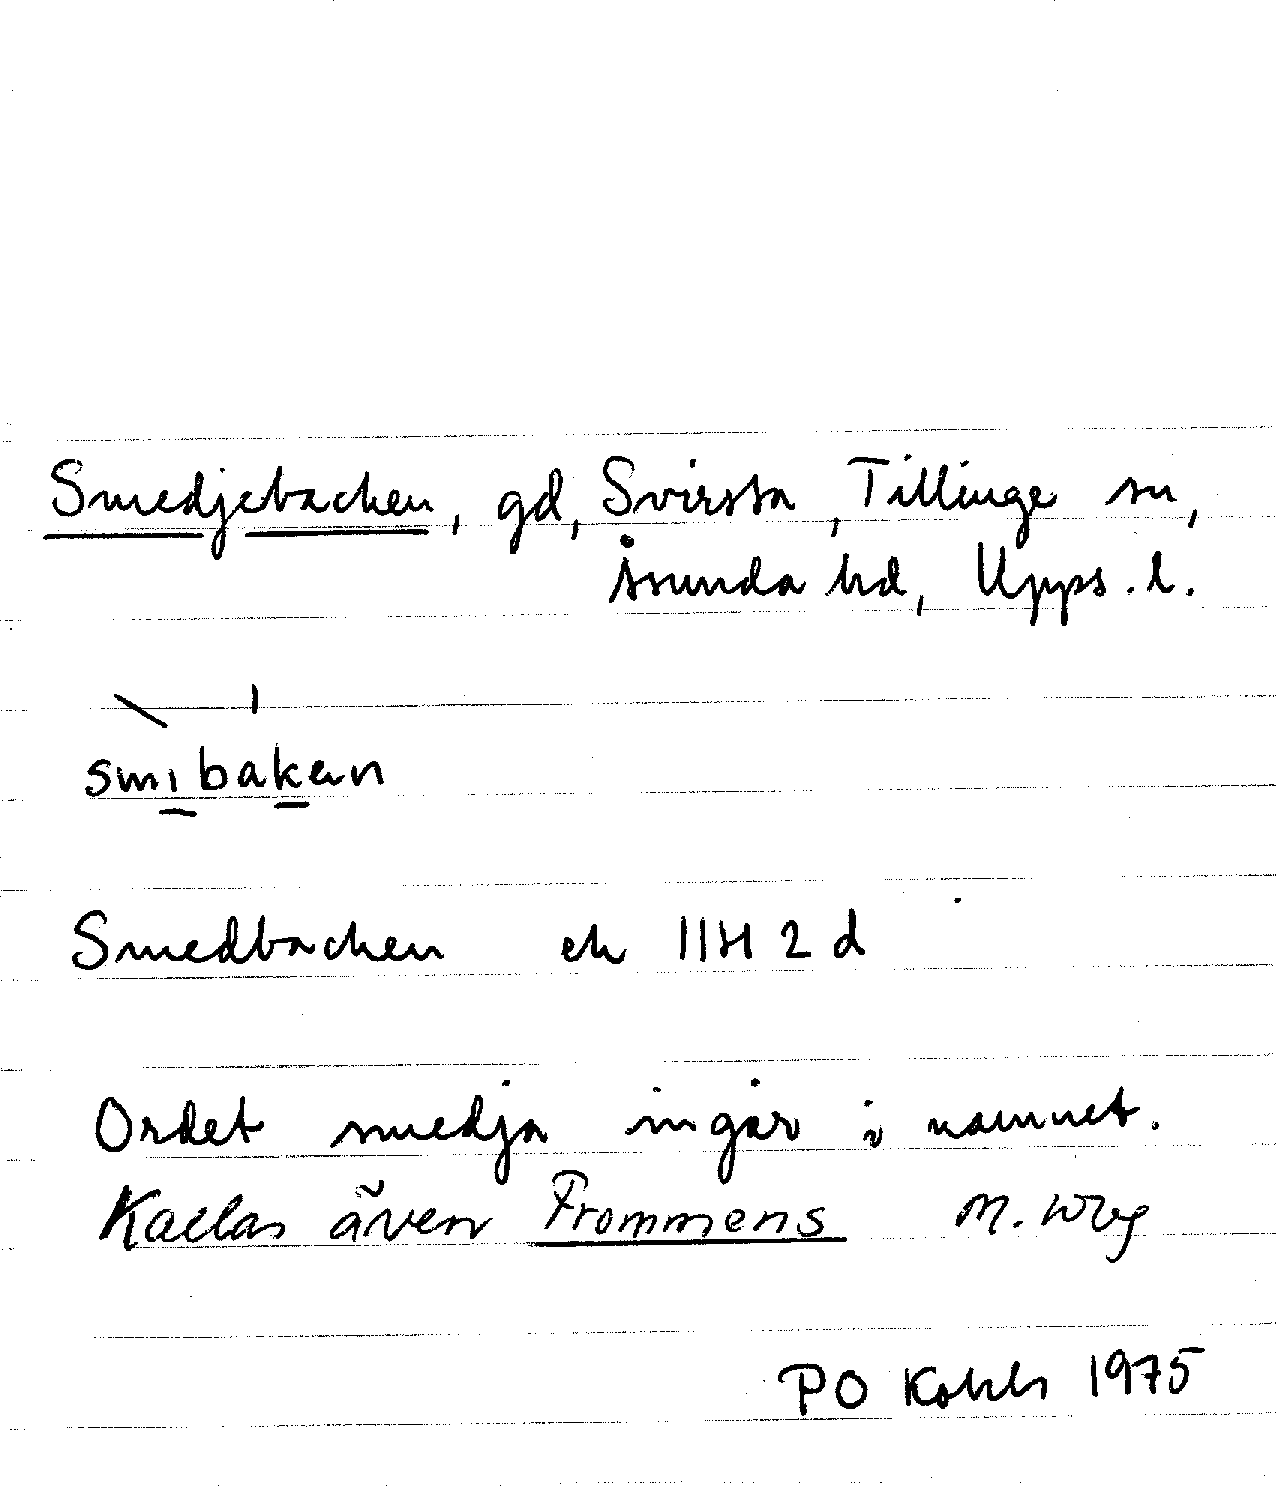 Smedjebacken, gd, Svirsta, Tillinge sn,
Åsunda hd, Upps. l.
smibakan
Smedbacken ek 11H 2 d
Ordet smedja ingår i namnet.
Kallas även Frommens M. Wbg
PO 1975